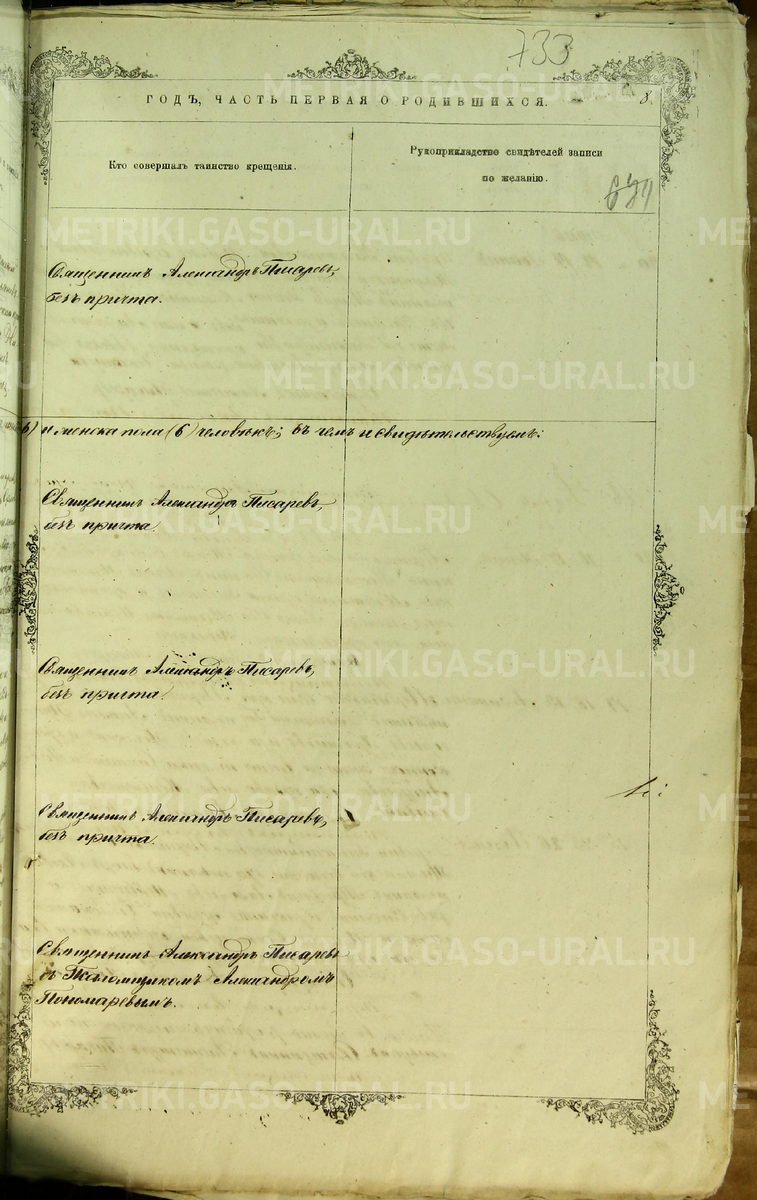 733
ГОДЪ, ЧАСТЬ ПЕРВАЯ О РОДИВШИХСЯ.
8.
Кто совершалъ таинство крещенія.
Рукоприкладство свидѣтелей записи
по желанію.
Священникъ Александръ Писаревъ,
безъ причта.
и женска пола (6) человѣкъ; въ чемъ и свидѣтельствуемъ:
Священникъ Александръ Писаревъ,
безъ причта.
Священникъ Александръ Писаревъ,
безъ причта.
Священникъ Александръ Писаревъ,
безъ причта.
Священникъ Александръ Писаревъ
съ Псаломщикомъ Александромъ
Пономаревымъ.
METRIKI.GASO-URAL.RU